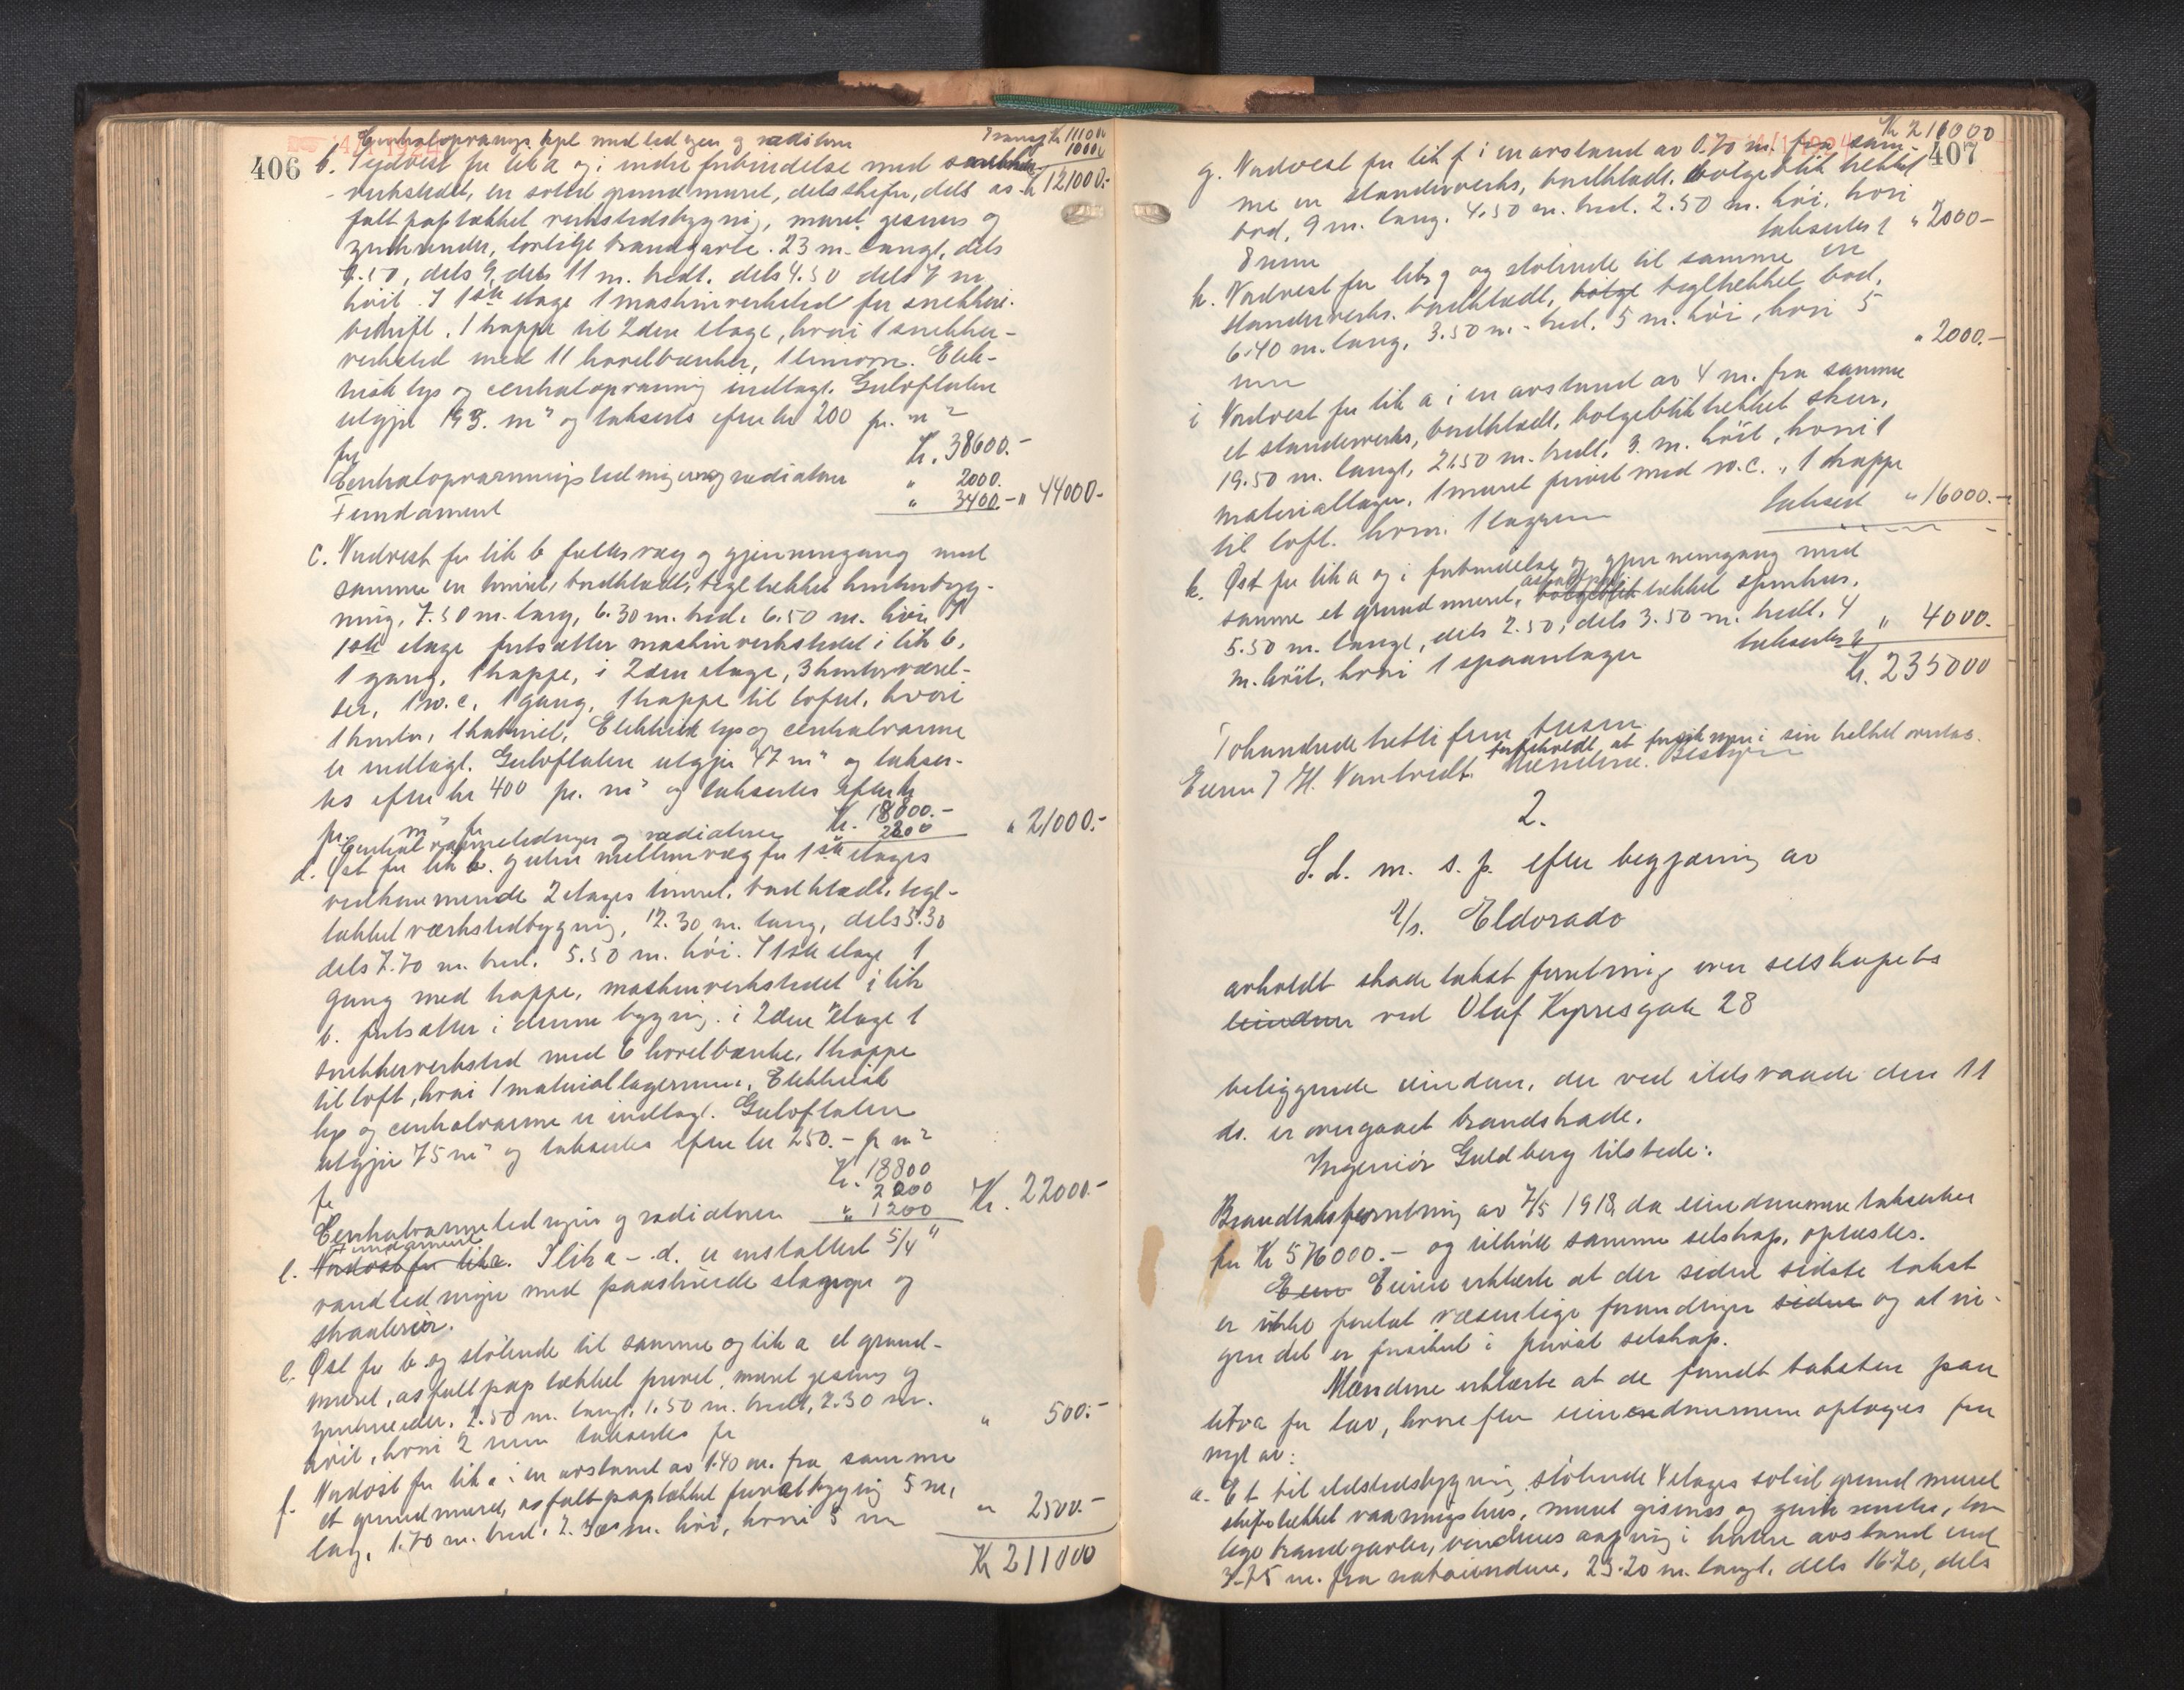 406
Centralopvarmings kjel med ledgen og radiatorer Transp. Kr. 111000
10000
b. Sydvest for litr a og i indre forbindelse med snekker- Kr 121000.-
verkstedt, en solid grundmuret, dels skefer, dels as-
faltpaptækket verkstedsbygning, muret gesims og
zinkrender, lovlige brandgavle. 23 m. langt, dels
9.50, dels 9, dels 11 m. bredt. dels 4.50 dels 7 m
höit. I 1ste etage 1 maskinverksted for snekkeri-
bedrift. 1 trappe til 2den etage, hvori 1 snekker-
verksted med 11 hovelbænker, 1 limovn. Elek-
trisk lys og centralopvarming indlagt. Gulvflaten
utgjør 193. m² og takseres efter kr 200 pr. m²
for Kr. 38600.-
Centralopvarmningsledninger og radiatorer " 2000.
Fundament " 3400.- " 44000.-
c. Nordvest for litr b fælles væg og gjennemgang med
samme en tømret, bordklædt, tegltækket kontorbyg-
ning, 7.50 m. lang, 6.30 m. bred. 6.50 m. höi. I
1ste etage fortsætter maskinverkstedet i litr b.
1 gang, 1 trappe, i 2den etage, 3 kontorværel-
ser, 1 w.c. 1 gang, 1 trappe til loftet, hvori
1 kontor, 1 kabinet, Elektrisk lys og centralvarme
er indlagt. Gulvflaten utgjør 47 m² og takser-
es efter kr 400 pr. m² og takseres efter kr
pr. m² for Kr. 18800.-
Central varmeledninger og radiatorer 2200 " 21000.-
d. Øst for litr b. uten mellemvæg for 1ste etages
vedkommende 2 etages tømret, bordklædt, tegl-
tækket værkstedbygning, 12.30 m. lang, dels 5.30
dels 7.70 m. bred. 5.50 m. höi. I 1ste etage 1
gang med trappe, maskinverkstedet i litr
b. fortsætter i denne bygning. i 2den etage 1
snekkerverksted med 6 hovelbænke, 1 trappe
til loft, hvori 1 materiallagerrum. Elektrisk
lys og centralvarme er indlagt. Gulvflaten
utgjør 75 m² og takseres efter kr 250.- pr m²
for Kr. 18800
Centralvarmeledninger og radiatorer 2000
Fundament " 1200 Kr. 22000.-
e. Nordost for litr a. I litr a - d. er installert 5/4"
vandledninger med paaskruede slanger og
straalerör.
e. Øst for b og stötende til samme og litr a et grund-
muret, asfaltpaptækket privet, muret gesims og
zinkrender. 2.50 m. langt, 1.50 m. bredt, 2.30 m.
höit, hvori 2 rum takseres for " 500.-
f. Nordöst for litr e i en avstand av 1.40 m. fra samme
et grundmuret, asfaltpaptækket privetbygning 5 m.
lag, 1.70 m. bred. 2. m. höi, hvori 5 rum " 2500.-
Kr 211000
Kr 211000
407
g. Nordvest for litr f i en avstand av 0.70 m. fra sam-
me en standerverks, bordklædt, bolgeblik tækket
bod, 9 m. lang. 4.50 m. bred. 2.50 m. höi, hvori
8 rum takseres f " 2000-
h. Nordvest for litr g og stötende til samme en
standerverks. bordklædt, bolge tegltækket bod,
6.40 m. lang, 3.50 m. bred. 5 m. höi, hvori 5
rum " 2000.-
i Nordvest for litr a i en avstand av 4 m. fra samme
et standerverks, bordklædt, bolgebliktækket skur,
19.50 m. langt, 21.50 m. bredt. 3. m. höit, hvori 1
materiallager, 1 muret privet med w.c., 1 trappe
til loft. hvori 1 lagerrum takseret " 16000.-
k. Øst for litr a og i forbindelse og gjennemgang med
samme et grundmuret, bolgeblik asfaltpap tækket sponhus.
5.50 m. langt, dels 2.50, dels 3.50 m. bredt. 4
m. höit, hvori 1 spaanlager takseres f " 4000.
Kr. 235000
Tohundrede tretti fem tusen
forbeholdt, at forsikringen i sin helhet overtas.
Eieren J H. Nordtvedt. Mændene. Bestyrer
2.
S. d. m. s. p. efter begjæring av
A/s. Eldorado
avholdt skadetakst forretning over selskapets
eiendom ved Olaf Kyrresgate 28
beliggende eiendom, der ved ildsvaade den 11
ds. er overgaaet brandskade.
Ingeniör Guldberg tilstede.
Brandtakstforretning av 7/5 1918, da eiendommene takseres
for Kr 576000.- og tilhörte samme selskap, oplæstes.
Eieren Eieren erklærte at der siden sidste takst
er ikke foretat væsentlige forandringer siden og at in-
gen del er forsikret i privat selskap.
Mændene erklærte at de fandt taksten paa
litra for lav, hvorefter eiendommene optages fra
nyt av:
a. Et til ildstedsbygning, stötende 4 etages solid grundmuret
skifertækket vaaningshus, muret gesims og zinkrender, lov-
lige brandgavler, vindues aapning i kortere avstand end
3.75 m. fra naboeiendom. 23.20 m. langt, dels 16.20, dels